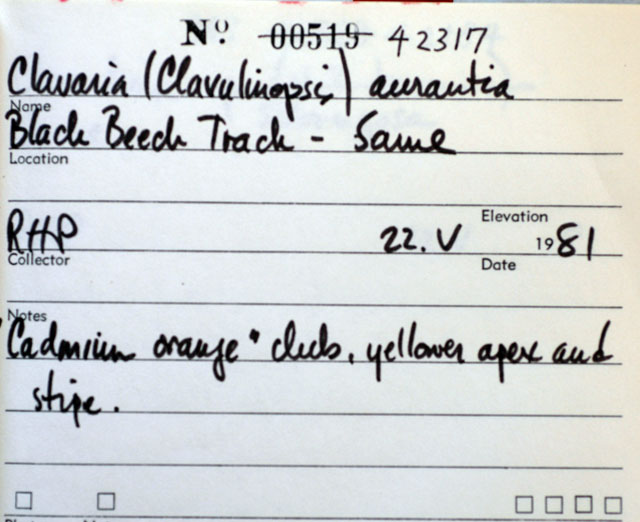 Nº 00519 42317
Clavaria (Clavulinopsis) aurantia
Name
Black Beech Track - Same
Location
Elevation
RHP 22. V 1981
Collector Date
Notes
"Cadmium orange" clubs, yellower apex and
stipe.